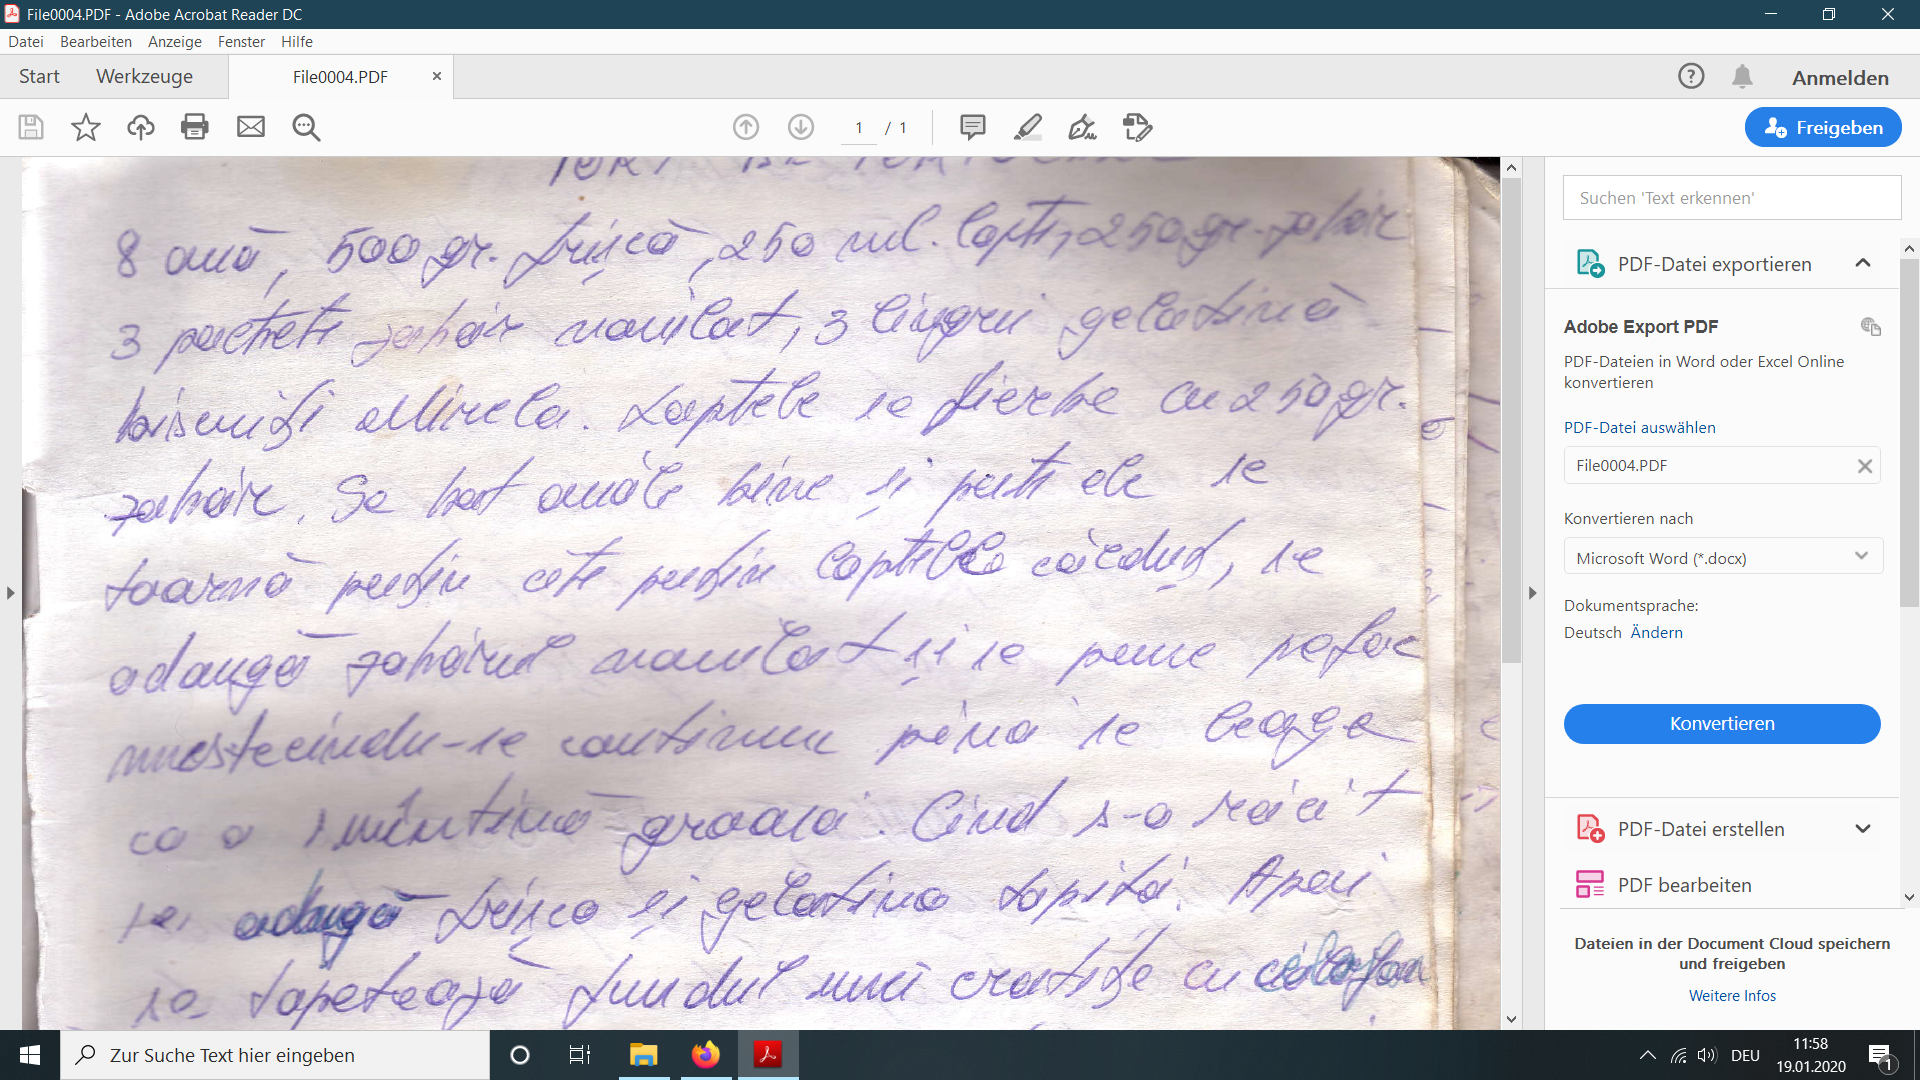 File0004.PDF - Adobe Acrobat Reader DC
Datei Bearbeiten Anzeige Fenster Hilfe
Start Werkzeuge File0004.PDF
Anmelden
1 / 1
Freigeben
TORT DE
8 ouă, 500 gr. frișcă, 250 ml. lapte, 250 gr. zahăr
3 pachete zahăr vanilat, 3 linguri gelatină
biscuiți Mirela. Laptele se fierbe cu 250 gr.
zahăr. Se bat ouăle bine și peste ele se
toarnă puțin cîte puțin laptele călduț, se
adaugă zahărul vanilat și se pune pe foc
mestecîndu-se continuu pînă se leagă
ca o smîntînă groasă. Cînd s-a răcit
se adaugă frișca și gelatina topită. Apoi
se tapetează fundul unei cratițe cu celofan
Suchen 'Text erkennen'
PDF-Datei exportieren
Adobe Export PDF
PDF-Dateien in Word oder Excel Online
konvertieren
PDF-Datei auswählen
File0004.PDF
Konvertieren nach
Microsoft Word (*.docx)
Dokumentsprache:
Deutsch Ändern
Konvertieren
PDF-Datei erstellen
PDF bearbeiten
Dateien in der Document Cloud speichern
und freigeben
Weitere Infos
Zur Suche Text hier eingeben
DEU
11:58
19.01.2020
1